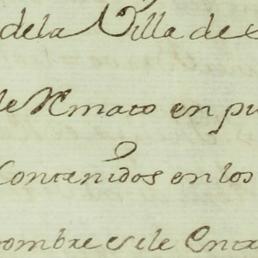 dela Villa de
de Remato en pu
Contenidos en los
nombre es de Enca